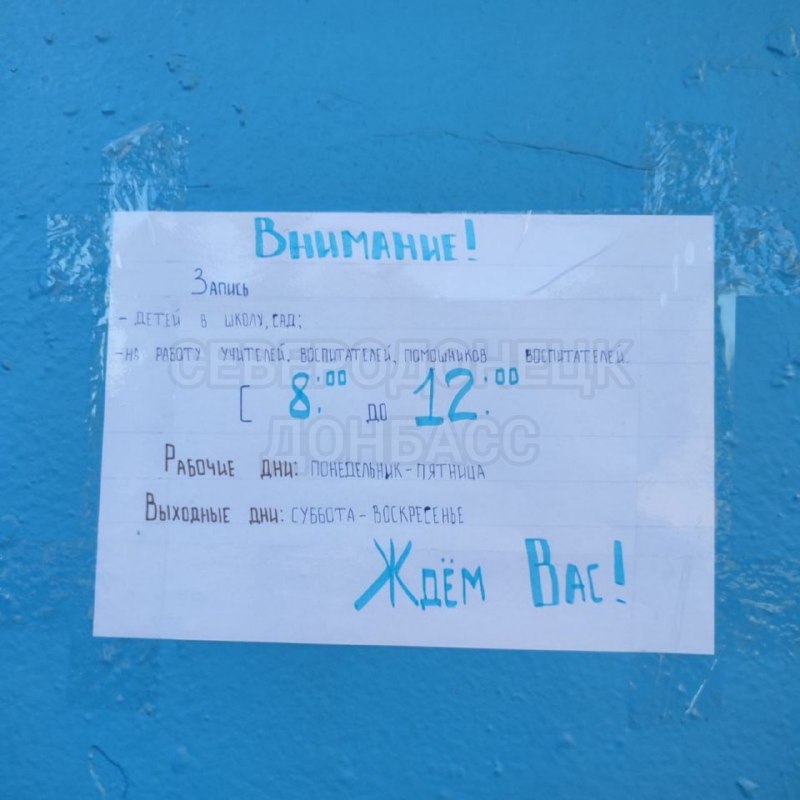 Внимание!
Запись
- детей в школу, сад;
- на работу учителей, воспитателей, помошников воспитателей.
СЕВЕРОДОНЕЦК
С 8:00 до 12:00
ДОНБАСС
Рабочие дни: понедельник - пятница
Выходные дни: суббота - воскресенье
Ждём Вас!